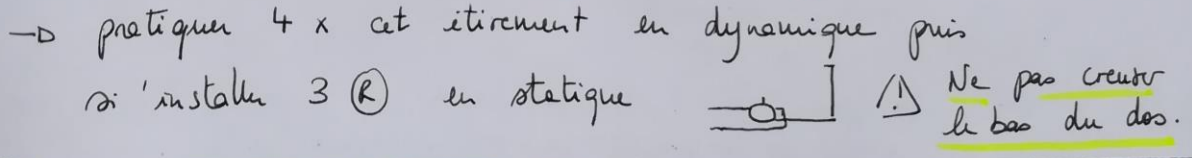 → pratiquer 4 x cet étirement en dynamique puis
si'installer 3 Ⓡ en statique
⚠ Ne pas creuser
le bas du dos.